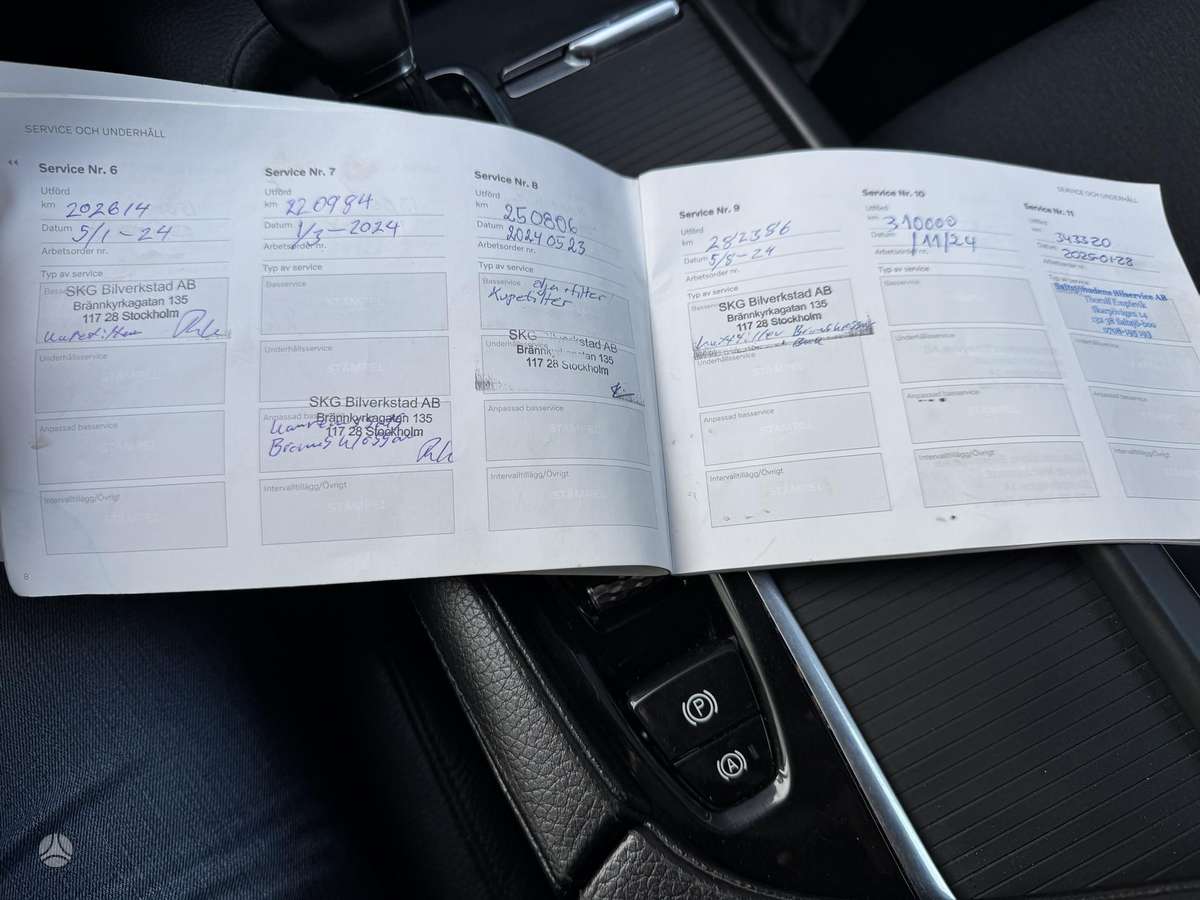 SERVICE OCH UNDERHÅLL
Service Nr. 6
Utförd
km 202614
Datum 5/1-24
Arbetsorder nr.
Typ av service
SKG Bilverkstad AB
Brännkyrkagatan 135
117 28 Stockholm
Underhållsservice
STÄMPEL
Anpassad basservice
STÄMPEL
Intervalltillägg/Övrigt
STÄMPEL
8
Service Nr. 7
Utförd
km 220984
Datum 1/3-2024
Arbetsorder nr.
Typ av service
Basservice
STÄMPEL
Underhållsservice
STÄMPEL
Anpassad basservice
SKG Bilverkstad AB
Brännkyrkagatan 135
117 28 Stockholm
Intervalltillägg/Övrigt
STÄMPEL
Service Nr. 8
Utförd
km 250806
Datum 20240523
Arbetsorder nr.
Typ av service
Basservice
Kupefilter
SKG Bilverkstad AB
Brännkyrkagatan 135
117 28 Stockholm
Anpassad basservice
STÄMPEL
Intervalltillägg/Övrigt
STÄMPEL
Service Nr. 9
Utförd
km 282386
Datum 5/8-24
Arbetsorder nr.
Typ av service
SKG Bilverkstad AB
Brännkyrkagatan 135
117 28 Stockholm
Underhållsservice
STÄMPEL
Anpassad basservice
STÄMPEL
Intervalltillägg/Övrigt
STÄMPEL
SERVICE OCH UNDERHÅLL
Service Nr. 10
Utförd
km 310000
Datum /11/24
Arbetsorder nr.
Typ av service
Basservice
STÄMPEL
Underhållsservice
Anpassad basservice
Intervalltillägg/Övrigt
Service Nr. 11
Utförd
km 343320
Datum 2025-01-28
Arbetsorder nr.
Typ av service
Bilservice AB
Underhållsservice
Anpassad basservice
Intervalltillägg/Övrigt
P
A